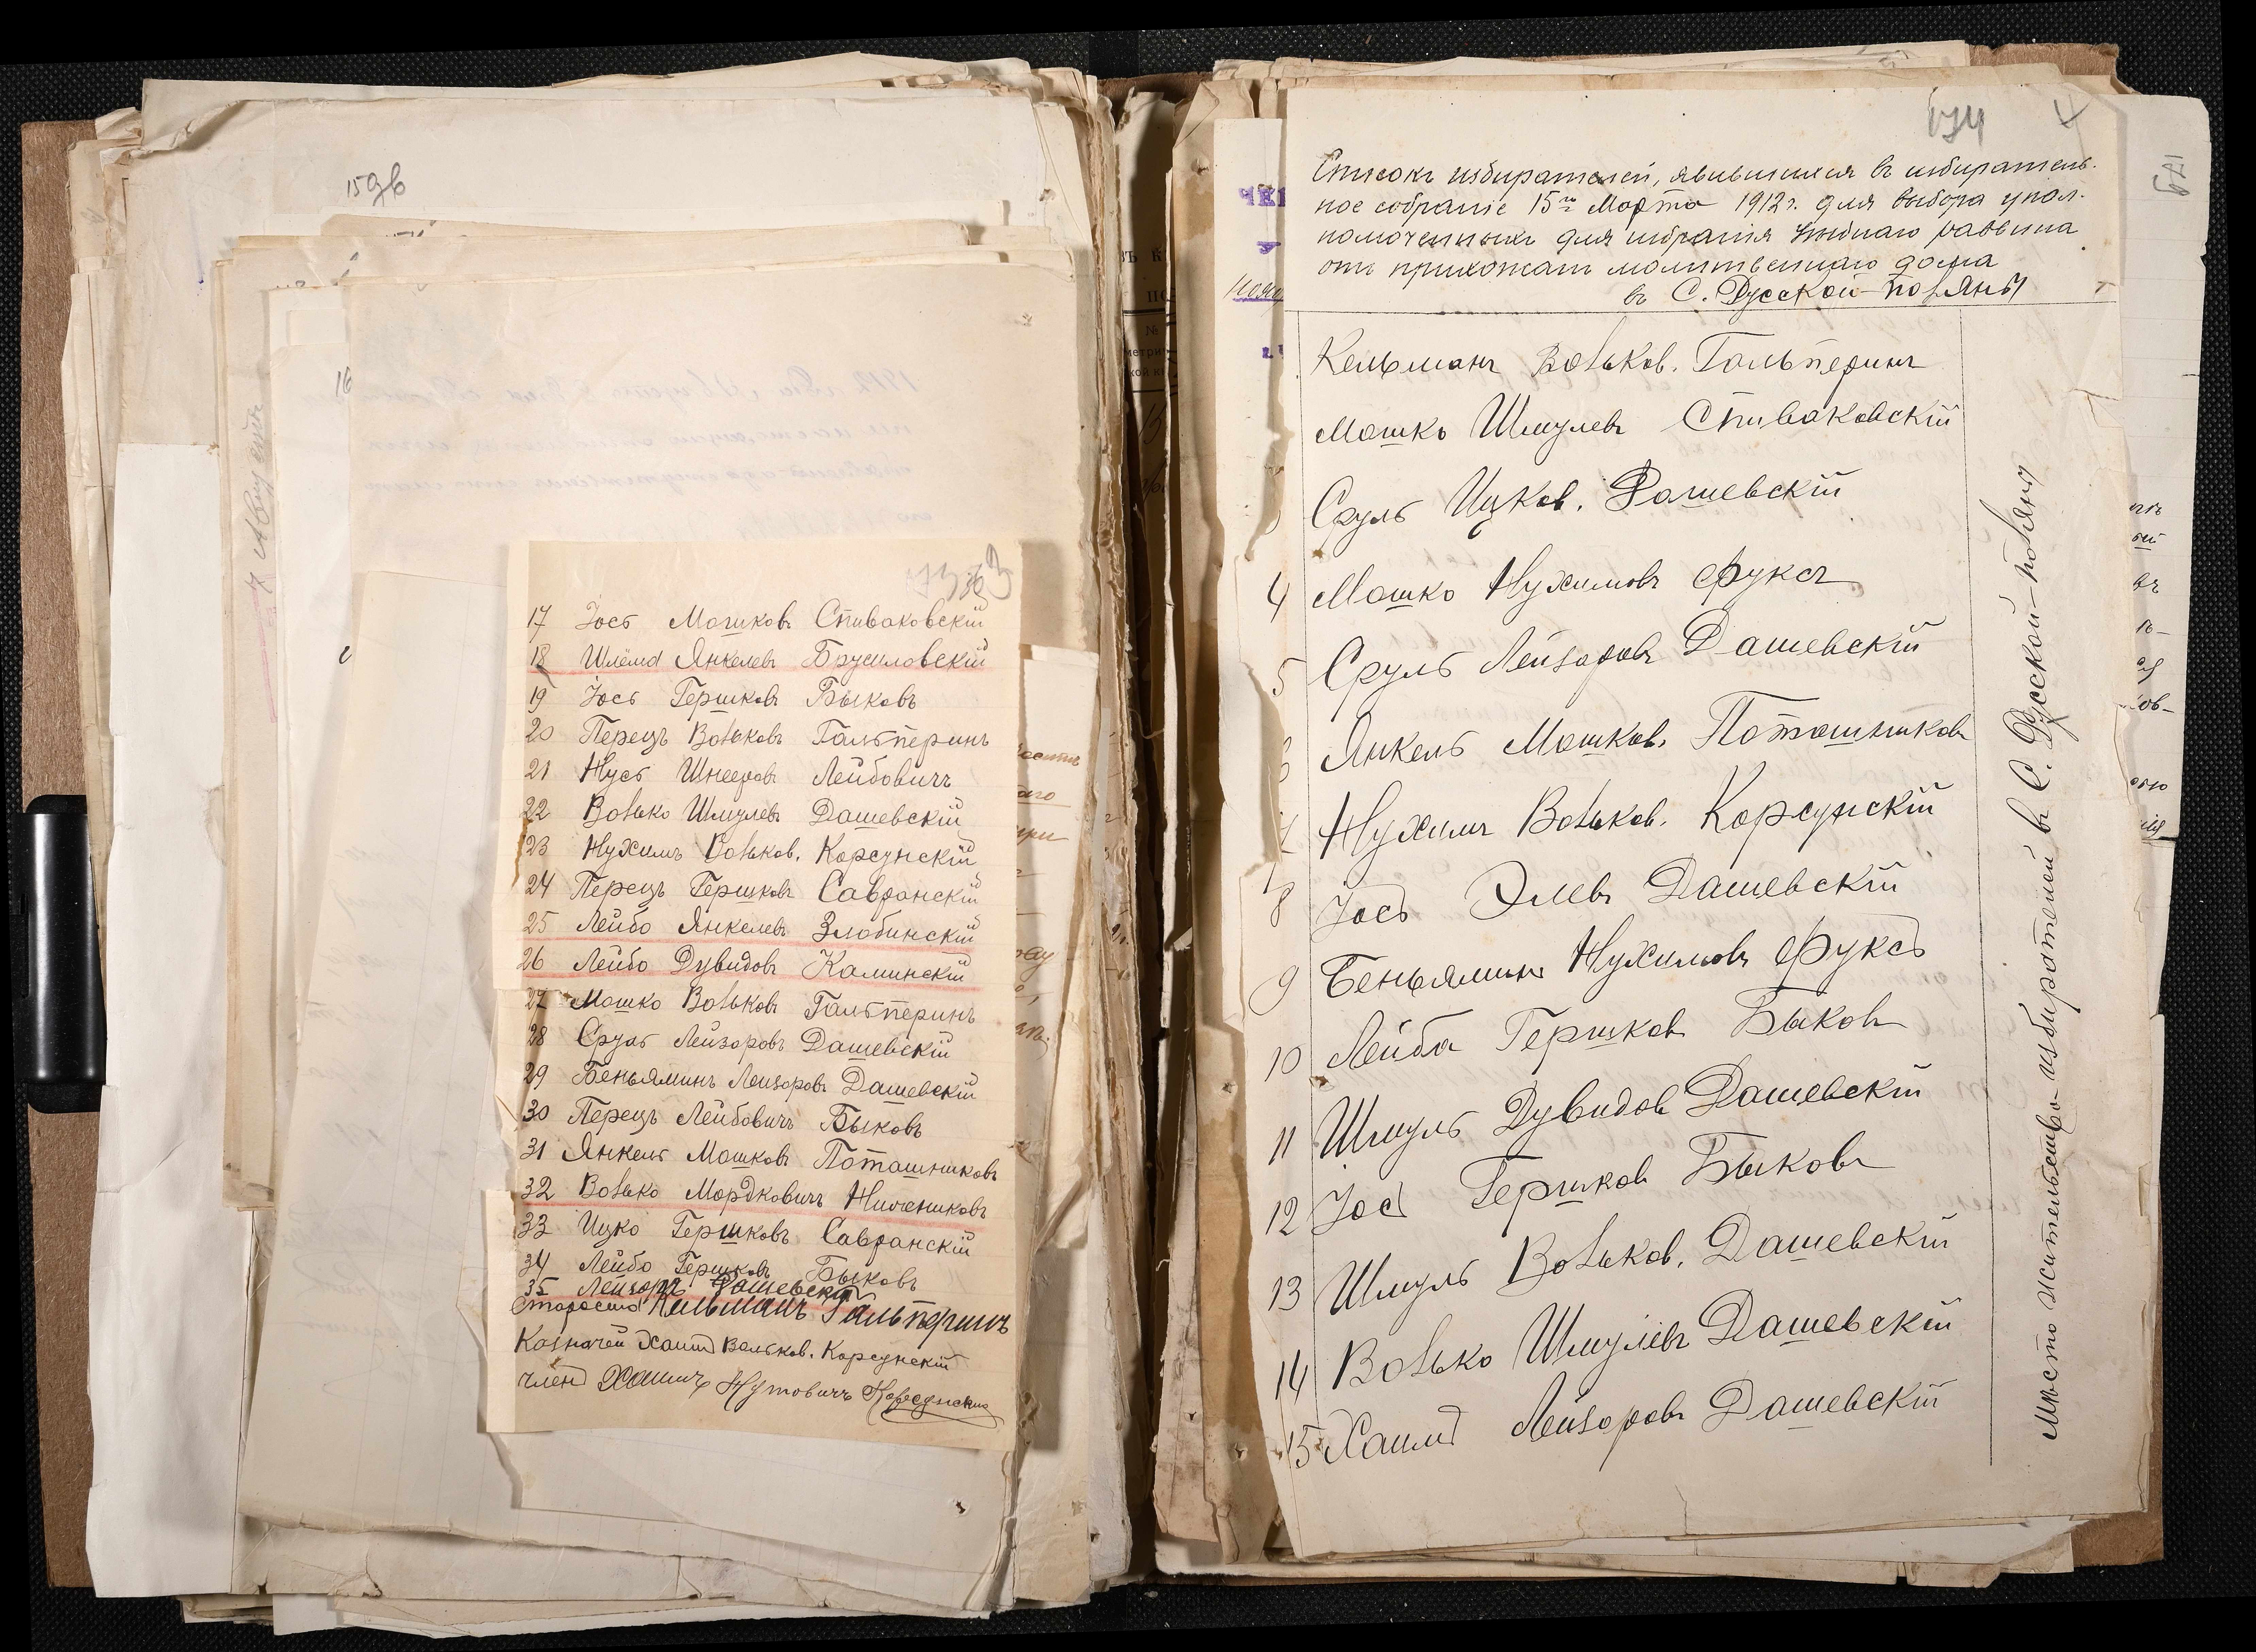 159б
16
17 Іось Мошковъ Спиваковскій
18 Шлёма Янкелевъ Брусиловскій
19 Іось Гершковъ Быковъ
20 Перецъ Вольковъ Гальперинъ
21 Нусь Шнееровъ Лейбовичъ
22 Волько Шмулевъ Дашевскій
23 Нухимъ Вольков. Корсунскій
24 Перецъ Гершковъ Савранскій
25 Лейбо Янкелевъ Злобинскій
26 Лейбо Дувидовъ Каминскій
27 Мошко Вольковъ Гальперинъ
28 Сруль Лейзоровъ Дашевскій
29 Беньяминъ Лейзоровъ Дашевскій
30 Перецъ Лейбовичъ Быковъ
31 Янкель Мошковъ Поташниковъ
32 Волько Мордковичъ
33 Ицко Гершковъ Савранскій
34 Лейбо Гершковъ Быковъ
35 Лейзоръ Дашевскій
Староста Кельманъ Гальперинъ
Казначей Хаимъ Вольков. Корсунскій
членъ Хаимъ Нутовичъ Корсунскій
Списокъ избирателей, явившихся въ избиратель-
ное собраніе 15го Марта 1912 г. для выбора упол-
номоченныхъ для избранія раввина
отъ прихожанъ молитвеннаго дома
въ С. Русской-Поляны
Кельманъ Вольков. Гальперинъ
Мошко Шмулевъ Спиваковскій
Сруль Ицков. Дашевскій
4 Мошко Нухимовъ Фуксъ
5 Сруль Лейзоровъ Дашевскій
6 Янкель Мошков. Поташниковъ
7 Нухимъ Вольков. Корсунскій
8 Іось Элевъ Дашевскій
9 Беньяминъ Нухимовъ Фуксъ
10 Лейба Гершков Быковъ
11 Шмуль Дувидов Дашевскій
12 Іось Гершков Быковъ
13 Шмуль Вольков. Дашевскій
14 Волько Шмулевъ Дашевскій
15 Хаимъ Лейзоровъ Дашевскій
Мѣсто жительство избирателей въ С. Русской-Поляны